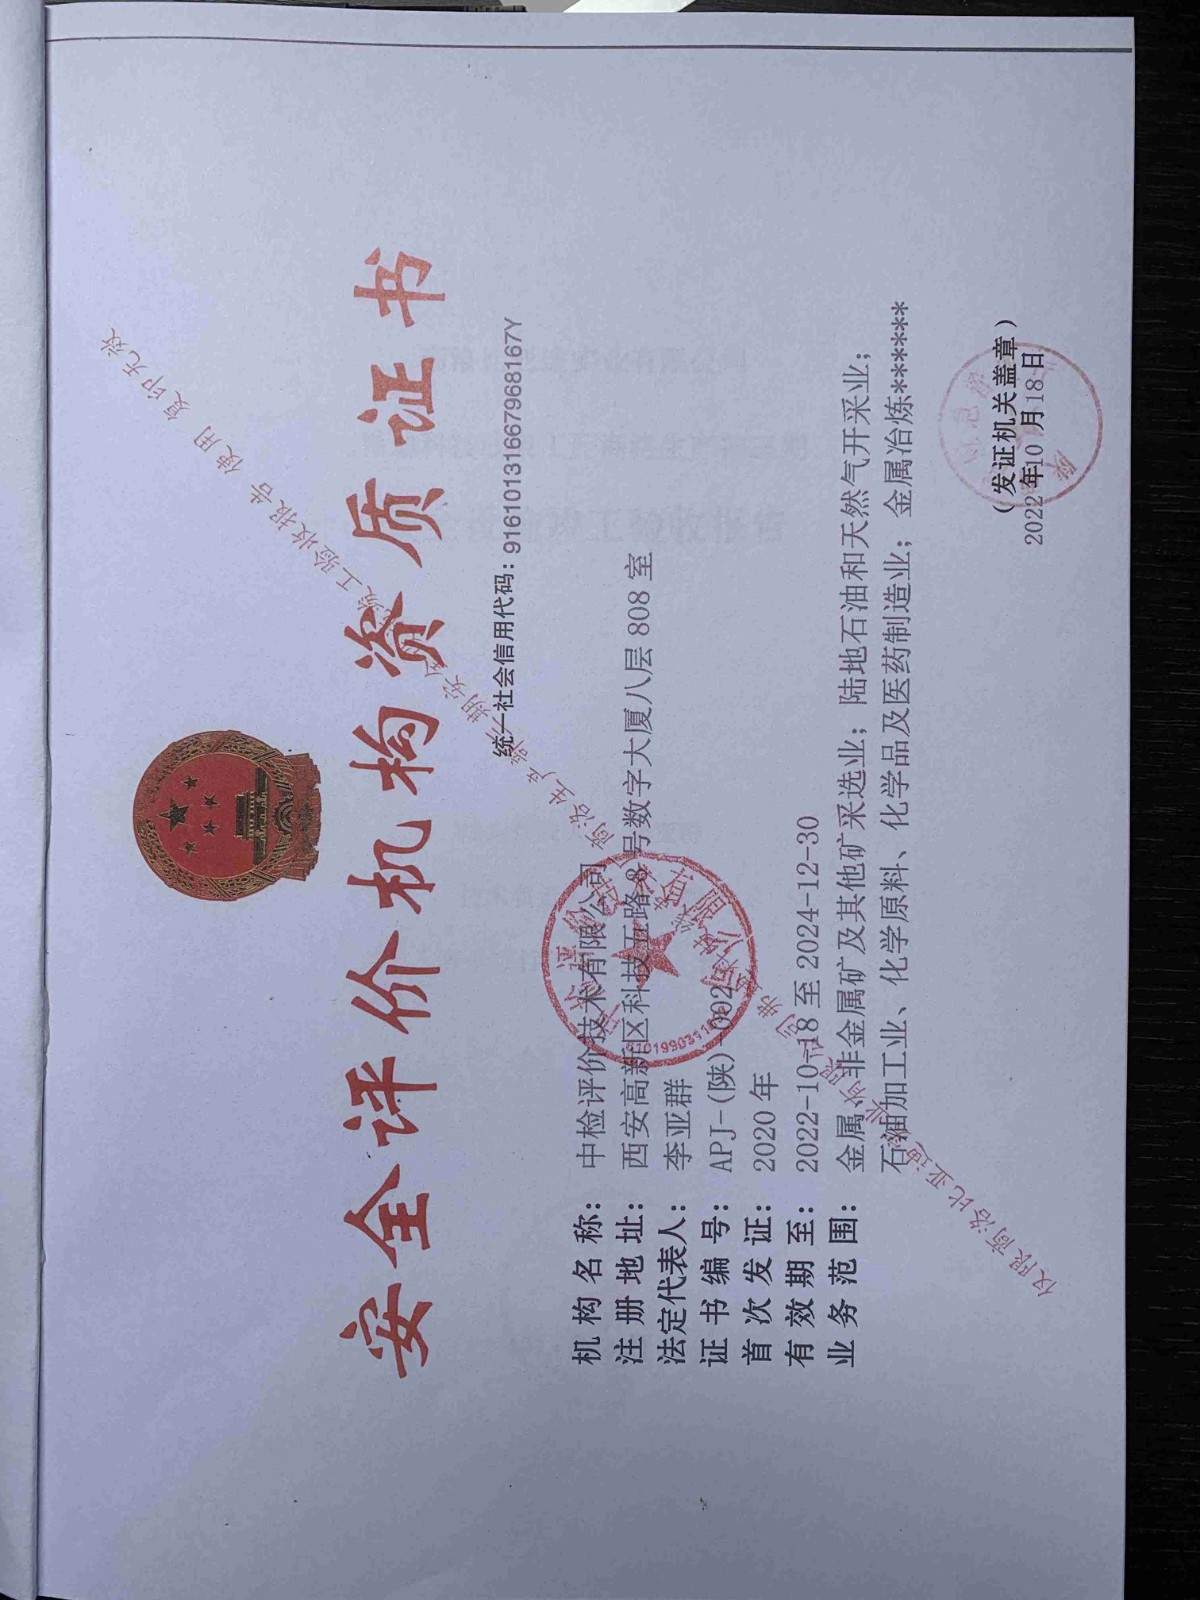 安全评价机构资质证书
统一社会信用代码：91610131667968167Y
机构名称：中检评价技术有限公司
注册地址：西安高新区科技五路8号数字大厦八层808室
法定代表人：李亚群
证书编号：APJ-(陕)-002
首次发证：2020年
有效期至：2022-10-18至2024-12-30
业务范围：金属、非金属矿及其他矿采选业；陆地石油和天然气开采业；
石油加工业、化学原料、化学品及医药制造业；金属冶炼******
（发证机关盖章）
2022年10月18日
仅限商洛比亚迪实业有限公司
工验收报告 使用 复印无效